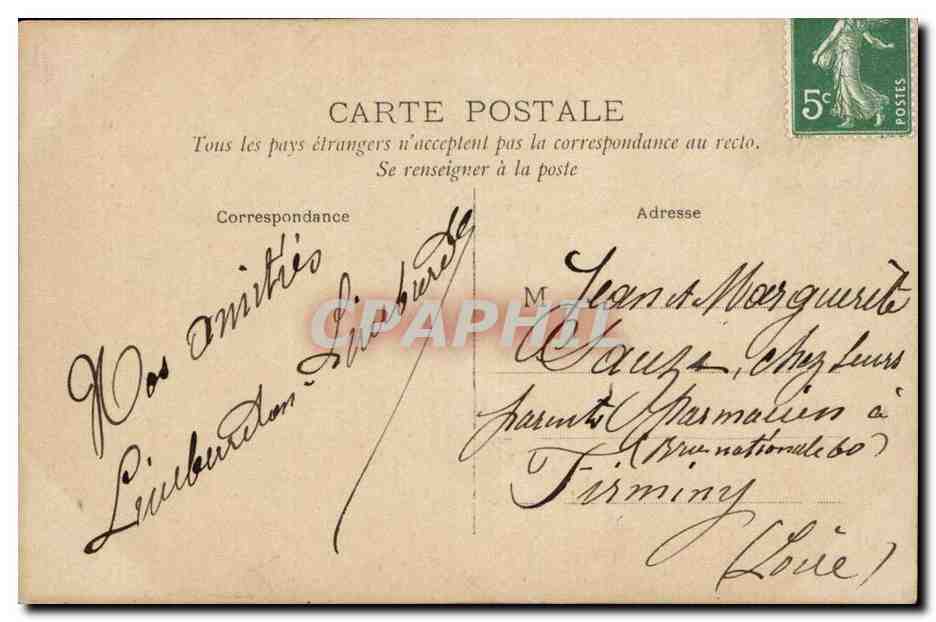 5c
POSTES
CARTE POSTALE
Tous les pays étrangers n'acceptent pas la correspondance au recto.
Se renseigner à la poste
Correspondance
Nos amitiés
Adresse
M Jean et Marguerite
Sauze, chez leurs
parents pharmacien à
(rue nationale 60)
Firminy
(Loire)
CPAPHIL